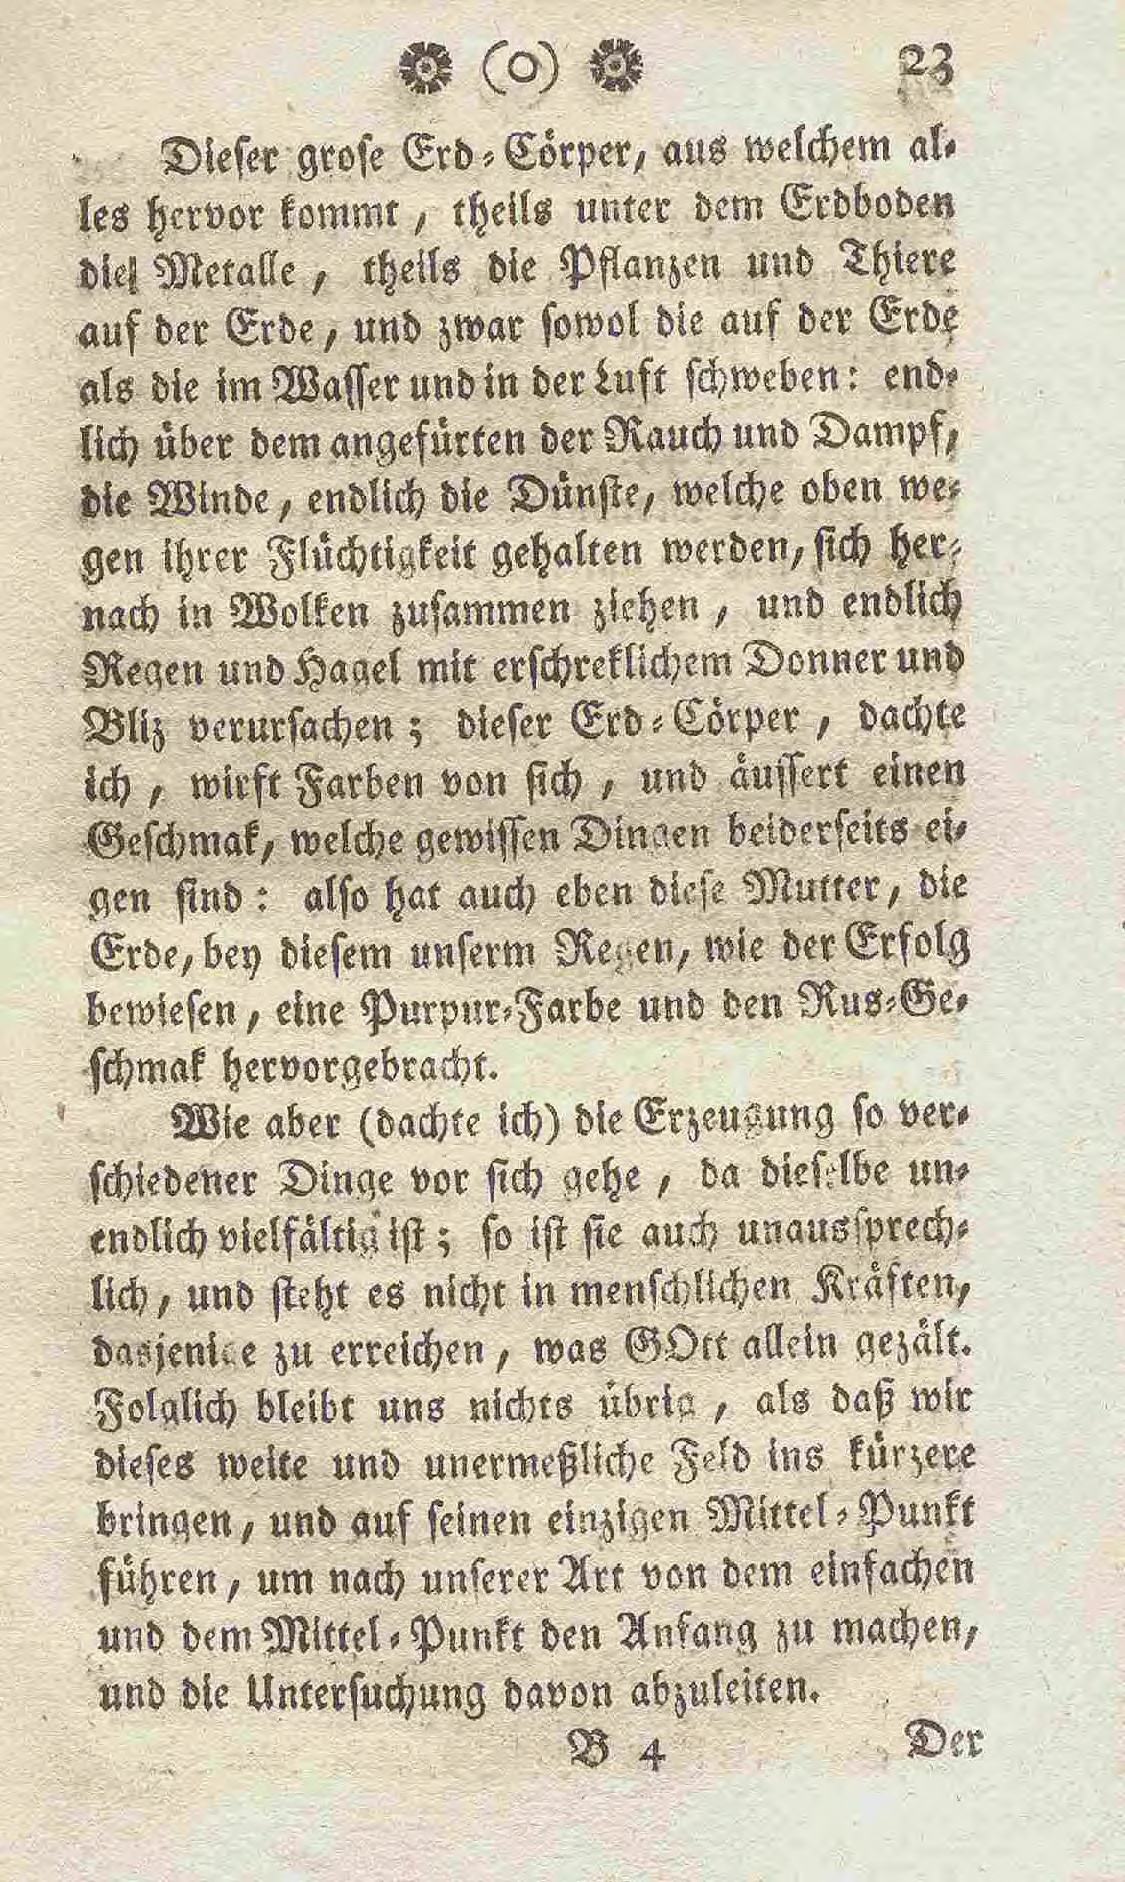 (0) 23
Dieser grose Erd-Cörper, aus welchem al-
les hervor kommt, theils unter dem Erdboden
die Metalle, theils die Pflanzen und Thiere
auf der Erde, und zwar sowol die auf der Erde
als die im Wasser und in der Luft schweben: end-
lich über dem angefürten der Rauch und Dampf,
die Winde, endlich die Dünste, welche oben we-
gen ihrer Flüchtigkeit gehalten werden, sich her-
nach in Wolken zusammen ziehen, und endlich
Regen und Hagel mit erschreklichem Donner und
Bliz verursachen; dieser Erd-Cörper, dachte
ich, wirft Farben von sich, und äussert einen
Geschmak, welche gewissen Dingen beiderseits ei-
gen sind: also hat auch eben diese Mutter, die
Erde, bey diesem unserm Regen, wie der Erfolg
bewiesen, eine Purpur-Farbe und den Rus-Ge-
schmak hervorgebracht.
Wie aber (dachte ich) die Erzeugung so ver-
schiedener Dinge vor sich gehe, da dieselbe un-
endlich vielfältig ist; so ist sie auch unaussprech-
lich, und steht es nicht in menschlichen Kräften,
dasjenige zu erreichen, was GOtt allein gezält.
Folglich bleibt uns nichts übrig, als daß wir
dieses weite und unermeßliche Feld ins kürzere
bringen, und auf seinen einzigen Mittel-Punkt
führen, um nach unserer Art von dem einfachen
und dem Mittel-Punkt den Anfang zu machen,
und die Untersuchung davon abzuleiten.
B 4 Der